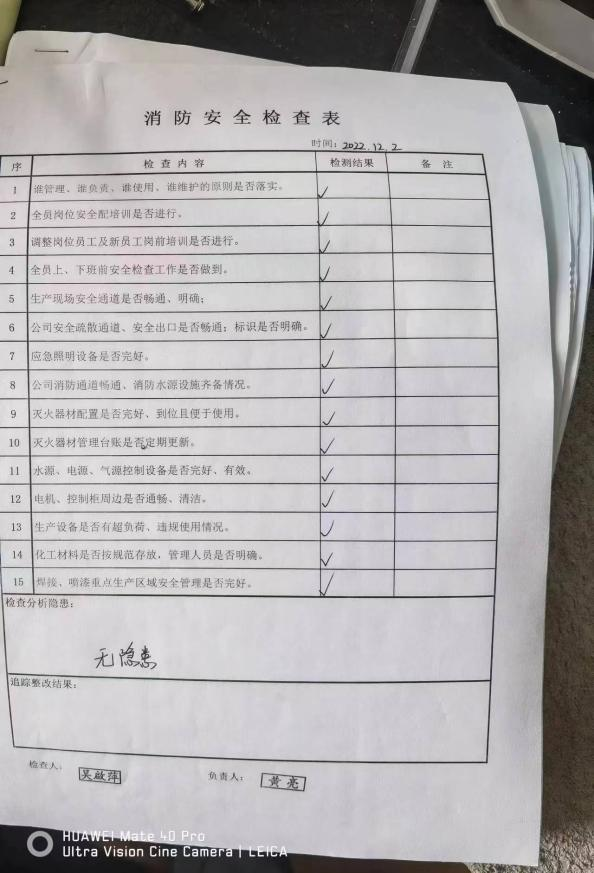 消防安全检查表
时间：2022.12.2
序 检查内容 检测结果 备注
1 谁管理、谁负责、谁使用、谁维护的原则是否落实。 ✓
2 全员岗位安全配培训是否进行。 ✓
3 调整岗位员工及新员工岗前培训是否进行。 ✓
4 全员上、下班前安全检查工作是否做到。 ✓
5 生产现场安全通道是否畅通、明确； ✓
6 公司安全疏散通道、安全出口是否畅通；标识是否明确。 ✓
7 应急照明设备是否完好。 ✓
8 公司消防通道畅通、消防水源设施齐备情况。 ✓
9 灭火器材配置是否完好、到位且便于使用。 ✓
10 灭火器材管理台账是否定期更新。 ✓
11 水源、电源、气源控制设备是否完好、有效。 ✓
12 电机、控制柜周边是否通畅、清洁。 ✓
13 生产设备是否有超负荷、违规使用情况。 ✓
14 化工材料是否按规范存放，管理人员是否明确。 ✓
15 焊接、喷漆重点生产区域安全管理是否完好。 ✓
检查分析隐患：
无隐患
追踪整改结果：
检查人： 吴啟萍 负责人： 黄亮
HUAWEI Mate 40 Pro
Ultra Vision Cine Camera | LEICA